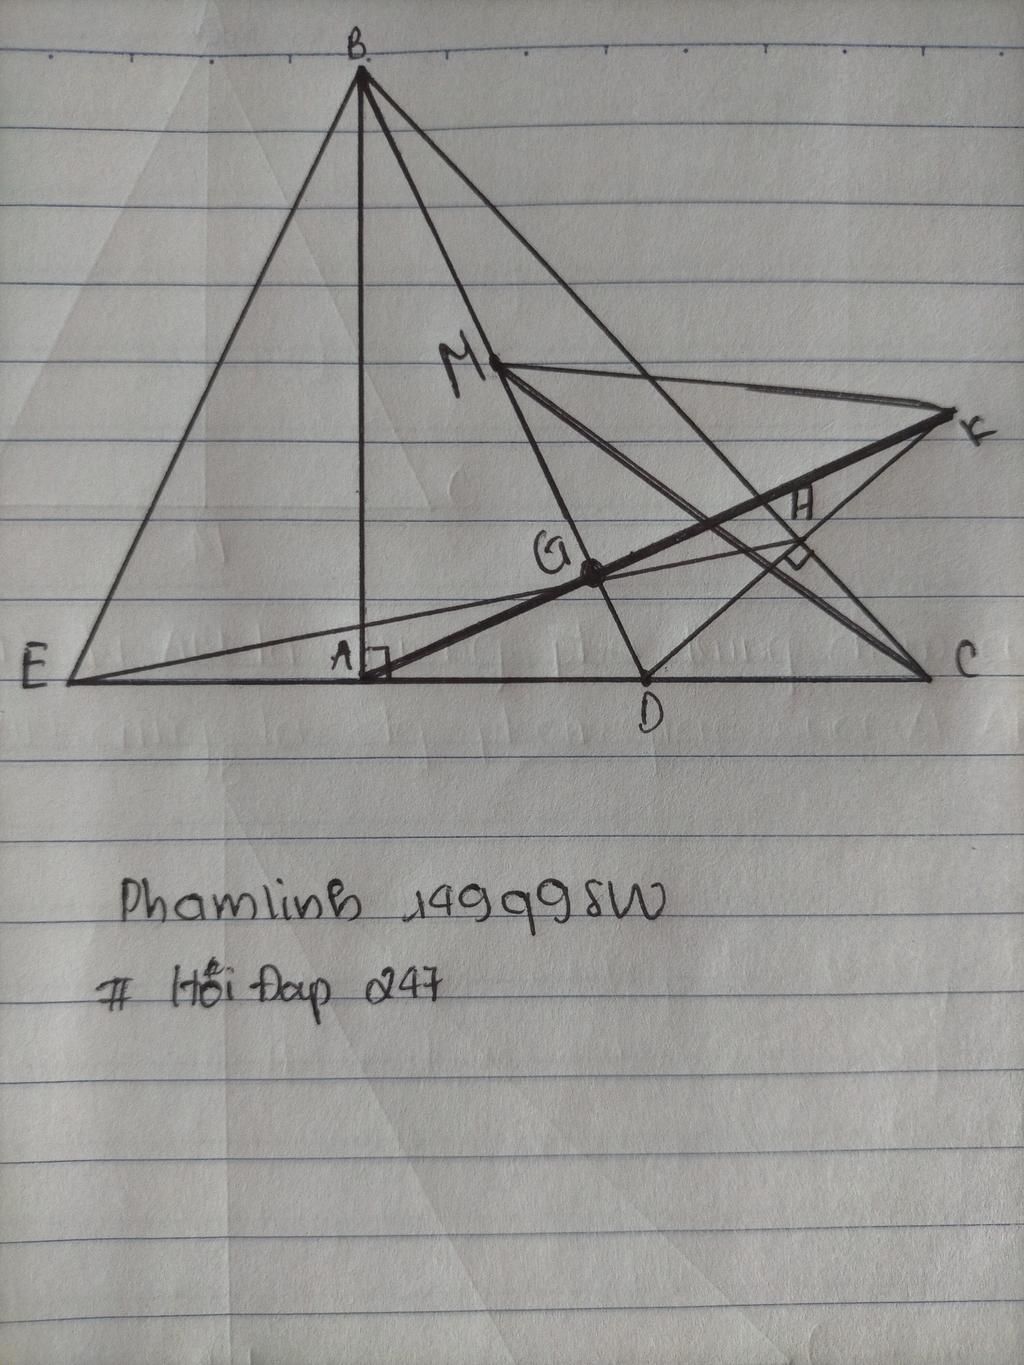 B
M
K
H
G
E
A
C
D
Phamlinh 149998W
# Hỏi Đap 247